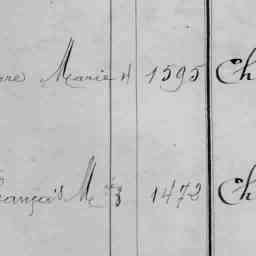 are Marie 4 1595 Ch
rançois M 3 1472 Ch